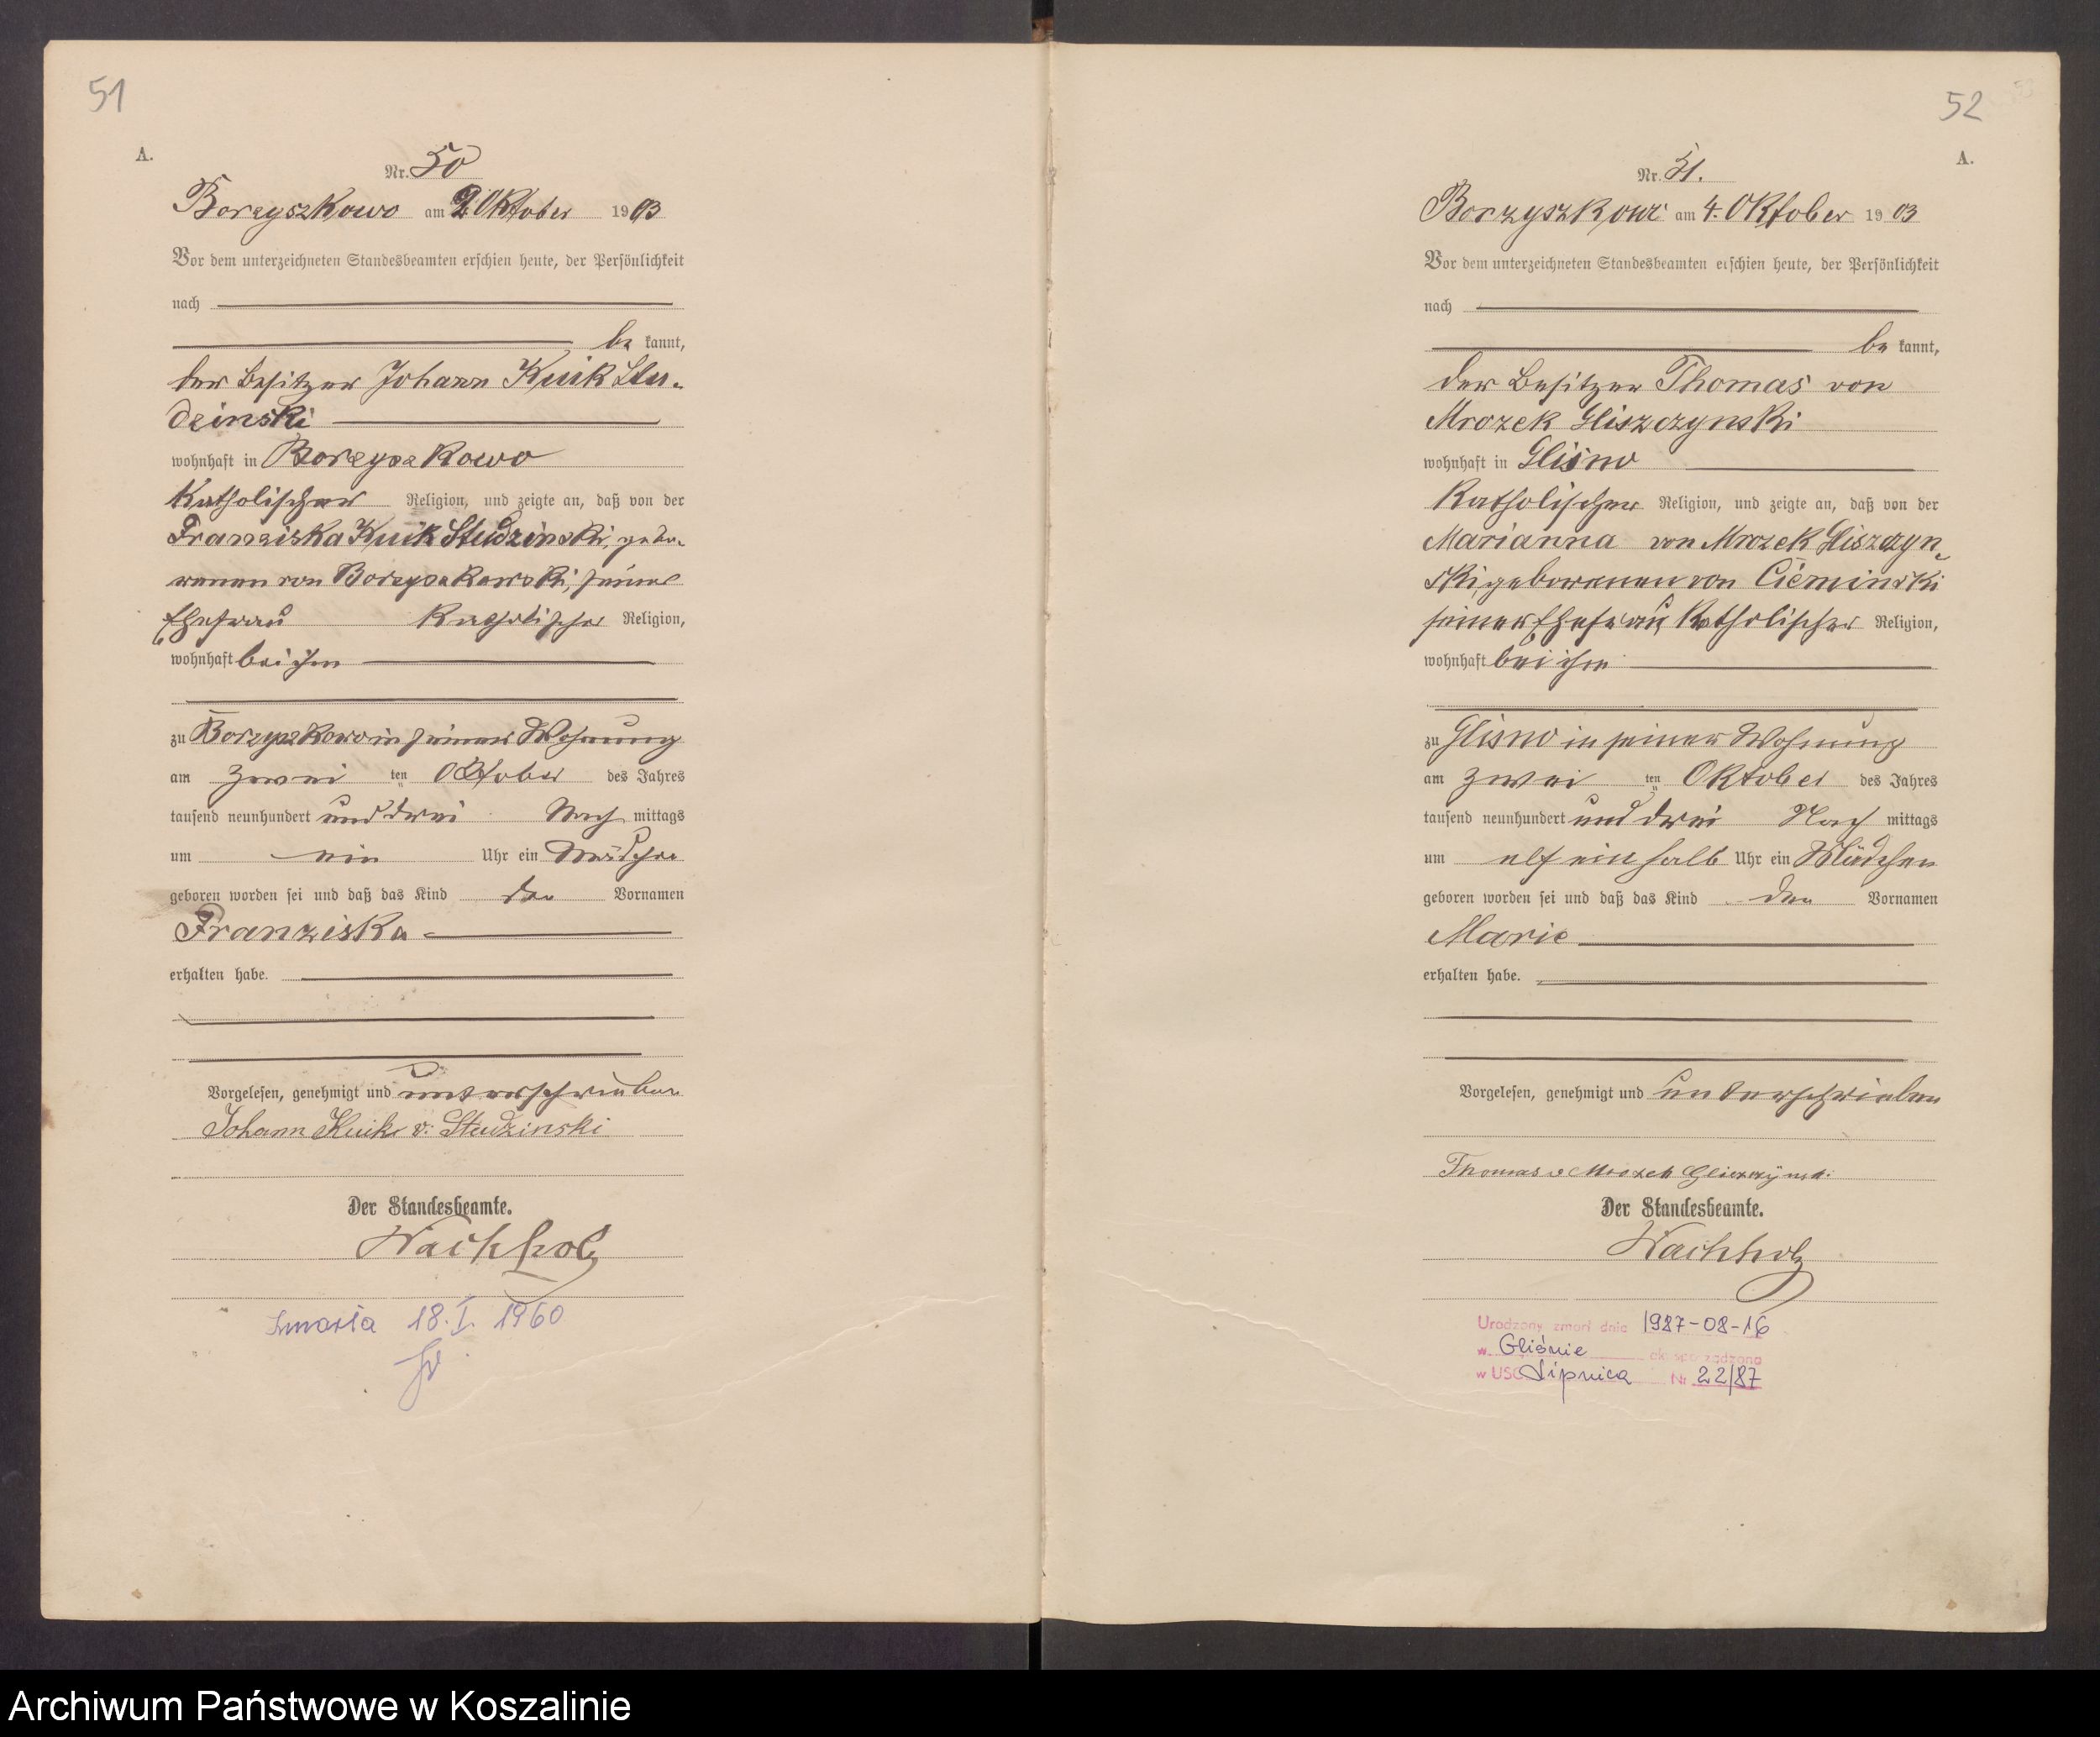 51
A.
Nr. 50
Borzyszkowo am 2 Oktober 1903
Vor dem unterzeichneten Standesbeamten erschien heute, der Persönlichkeit
nach
be kannt,
der Besitzer Johann Kuik Stu-
dzinski
wohnhaft in Borzyszkowo
Katholischer Religion, und zeigte an, daß von der
Franziska Kuik Studzinski, gebo-
renen von Borzyszkowski, seiner
Ehefrau Katholischer Religion,
wohnhaft bei ihm
zu Borzyszkowo in seiner Wohnung
am zwei ten Oktober des Jahres
tausend neunhundert und drei Nach mittags
um ein Uhr ein Mädchen
geboren worden sei und daß das Kind den Vornamen
Franziska
erhalten habe.
Vorgelesen, genehmigt und unterschrieben
Johann Kuik v. Studzinski
Der Standesbeamte.
Wachholz
zmarła 18.I.1960
52
A.
Nr. 51.
Borzyszkowo am 4. Oktober 1903
Vor dem unterzeichneten Standesbeamten erschien heute, der Persönlichkeit
nach
be kannt,
der Besitzer Thomas von
Mrozek Gliszczynski
wohnhaft in Glisno
Katholischer Religion, und zeigte an, daß von der
Marianna von Mrozek Gliszczyn-
ski, geborenen von Cieminski
seiner Ehefrau, Katholischer Religion,
wohnhaft bei ihm
zu Glisno in seiner Wohnung
am zwei ten Oktober des Jahres
tausend neunhundert und drei Nach mittags
um elf ein halb Uhr ein Mädchen
geboren worden sei und daß das Kind den Vornamen
Marie
erhalten habe.
Vorgelesen, genehmigt und unterschrieben
Thomas v Mrozek Gliszczynski
Der Standesbeamte.
Wachholz
Urodzony zmarł dnia 1987-08-16
w Gliśnie akt sporządzono
w USC Lipnica Nr 22/87
Archiwum Państwowe w Koszalinie